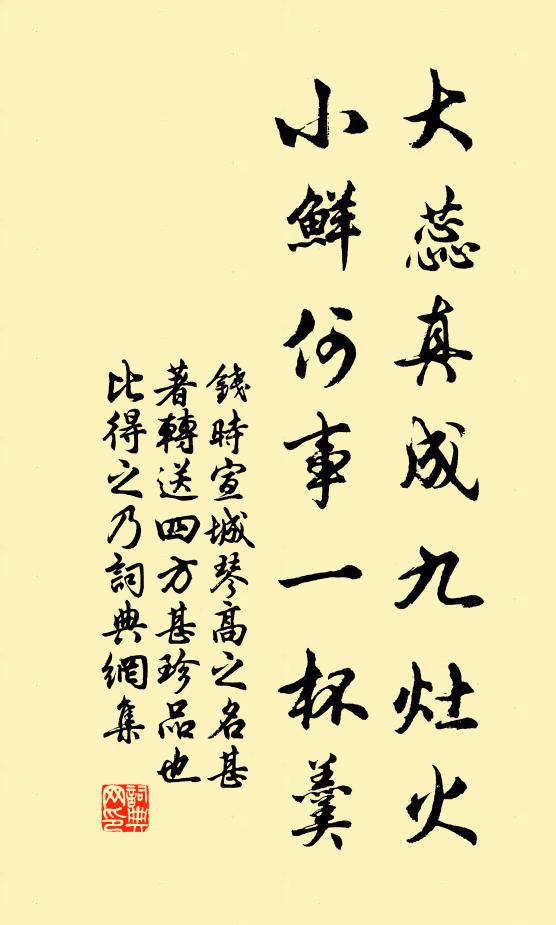 大蕊真成九灶火
小鮮何事一杯羹
錢時宣城琴高之名甚
著轉送四方甚珍品也
比得之乃詞典網集
詞典
网印